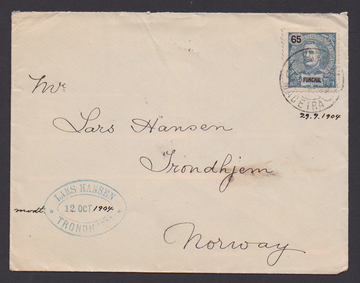 65
FUNCHAL
MADEIRA
29.9.1904
Mr
Lars Hansen
Trondhjem
Norway
LARS HANSEN
modt. 12 OCT 1904
TRONDHJEM